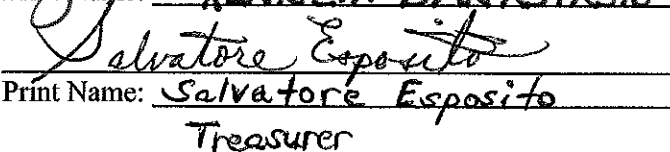 Salvatore Esposito
Print Name: Salvatore Esposito
Treasurer